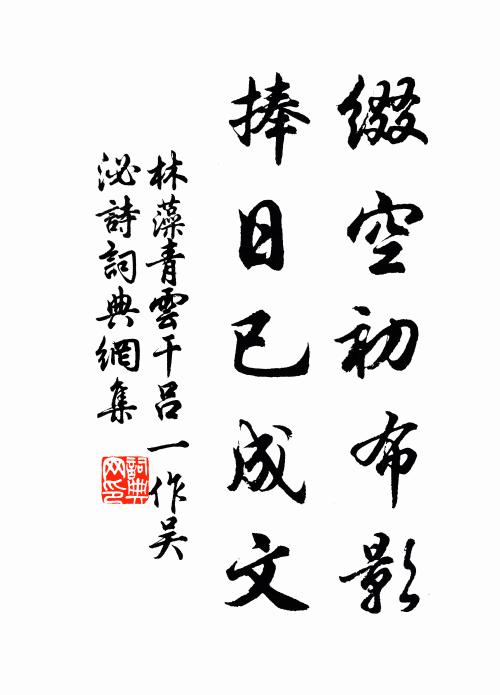 綴空初布影
捧日已成文
林藻青雲干呂一作吴
泌詩詞典網集
詞典
网印